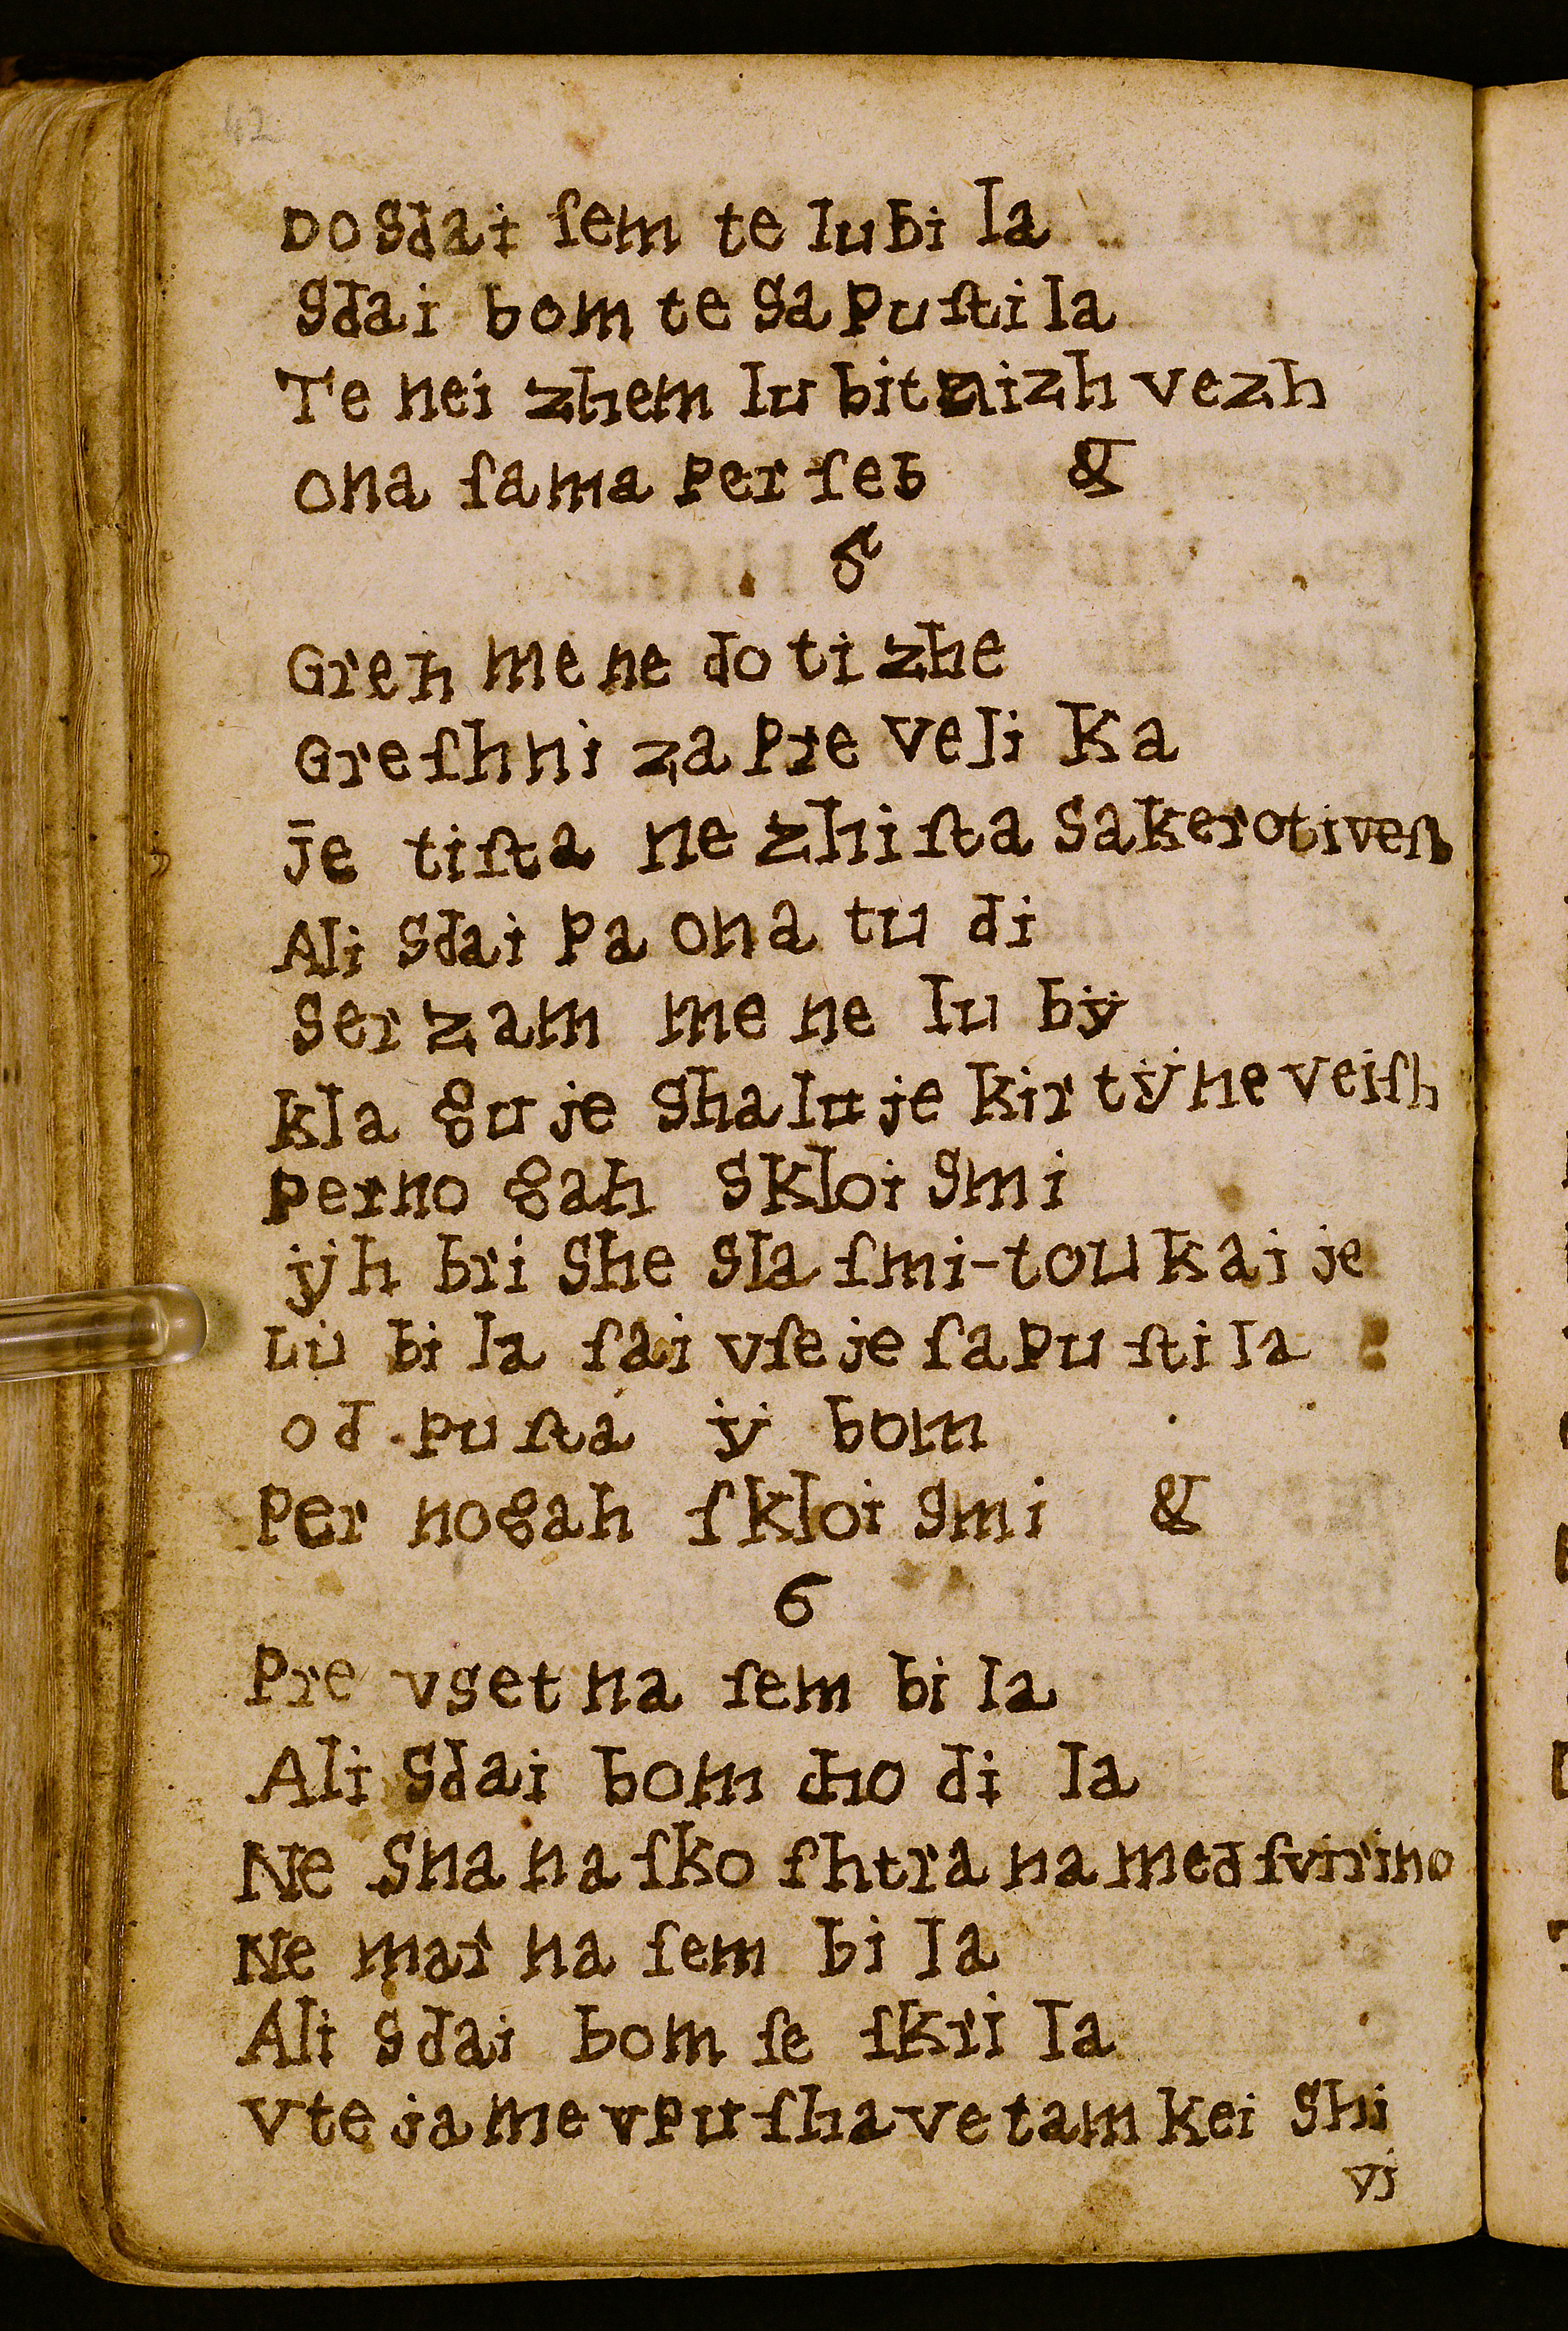 42
Dosdai ſem te lubi la
Sdai bom te Sa Puſti la
Te nei zhem lu bit nizh vezh
ona ſama Per ſeb &
5
Greh me ne do ti zhe
Greſhni za Pre Veli Ka
je tiſta ne zhiſta Sakerotiveſh
Ali Sdai Pa ona tu di
Ser zam me ne lu bÿ
kla gu je Shalu je kir tÿ ne veiſh
Perno gah Skloi Smi
jÿh bri She Sla ſmi-tou kai je
Lu bi la ſai vſe je ſa Pu ſti la
od pu ſta ÿ bom
Per nogah ſkloi Smi &
6
Pre vset na ſem bi la
Ali Sdai bom cho di la
Ne Sna na ſko ſhtra na med ſvirino
Ne mar na ſem bi la
Ali Sdai bom ſe ſkri la
Vte ja me vPu ſha ve tam kei Shi
vj